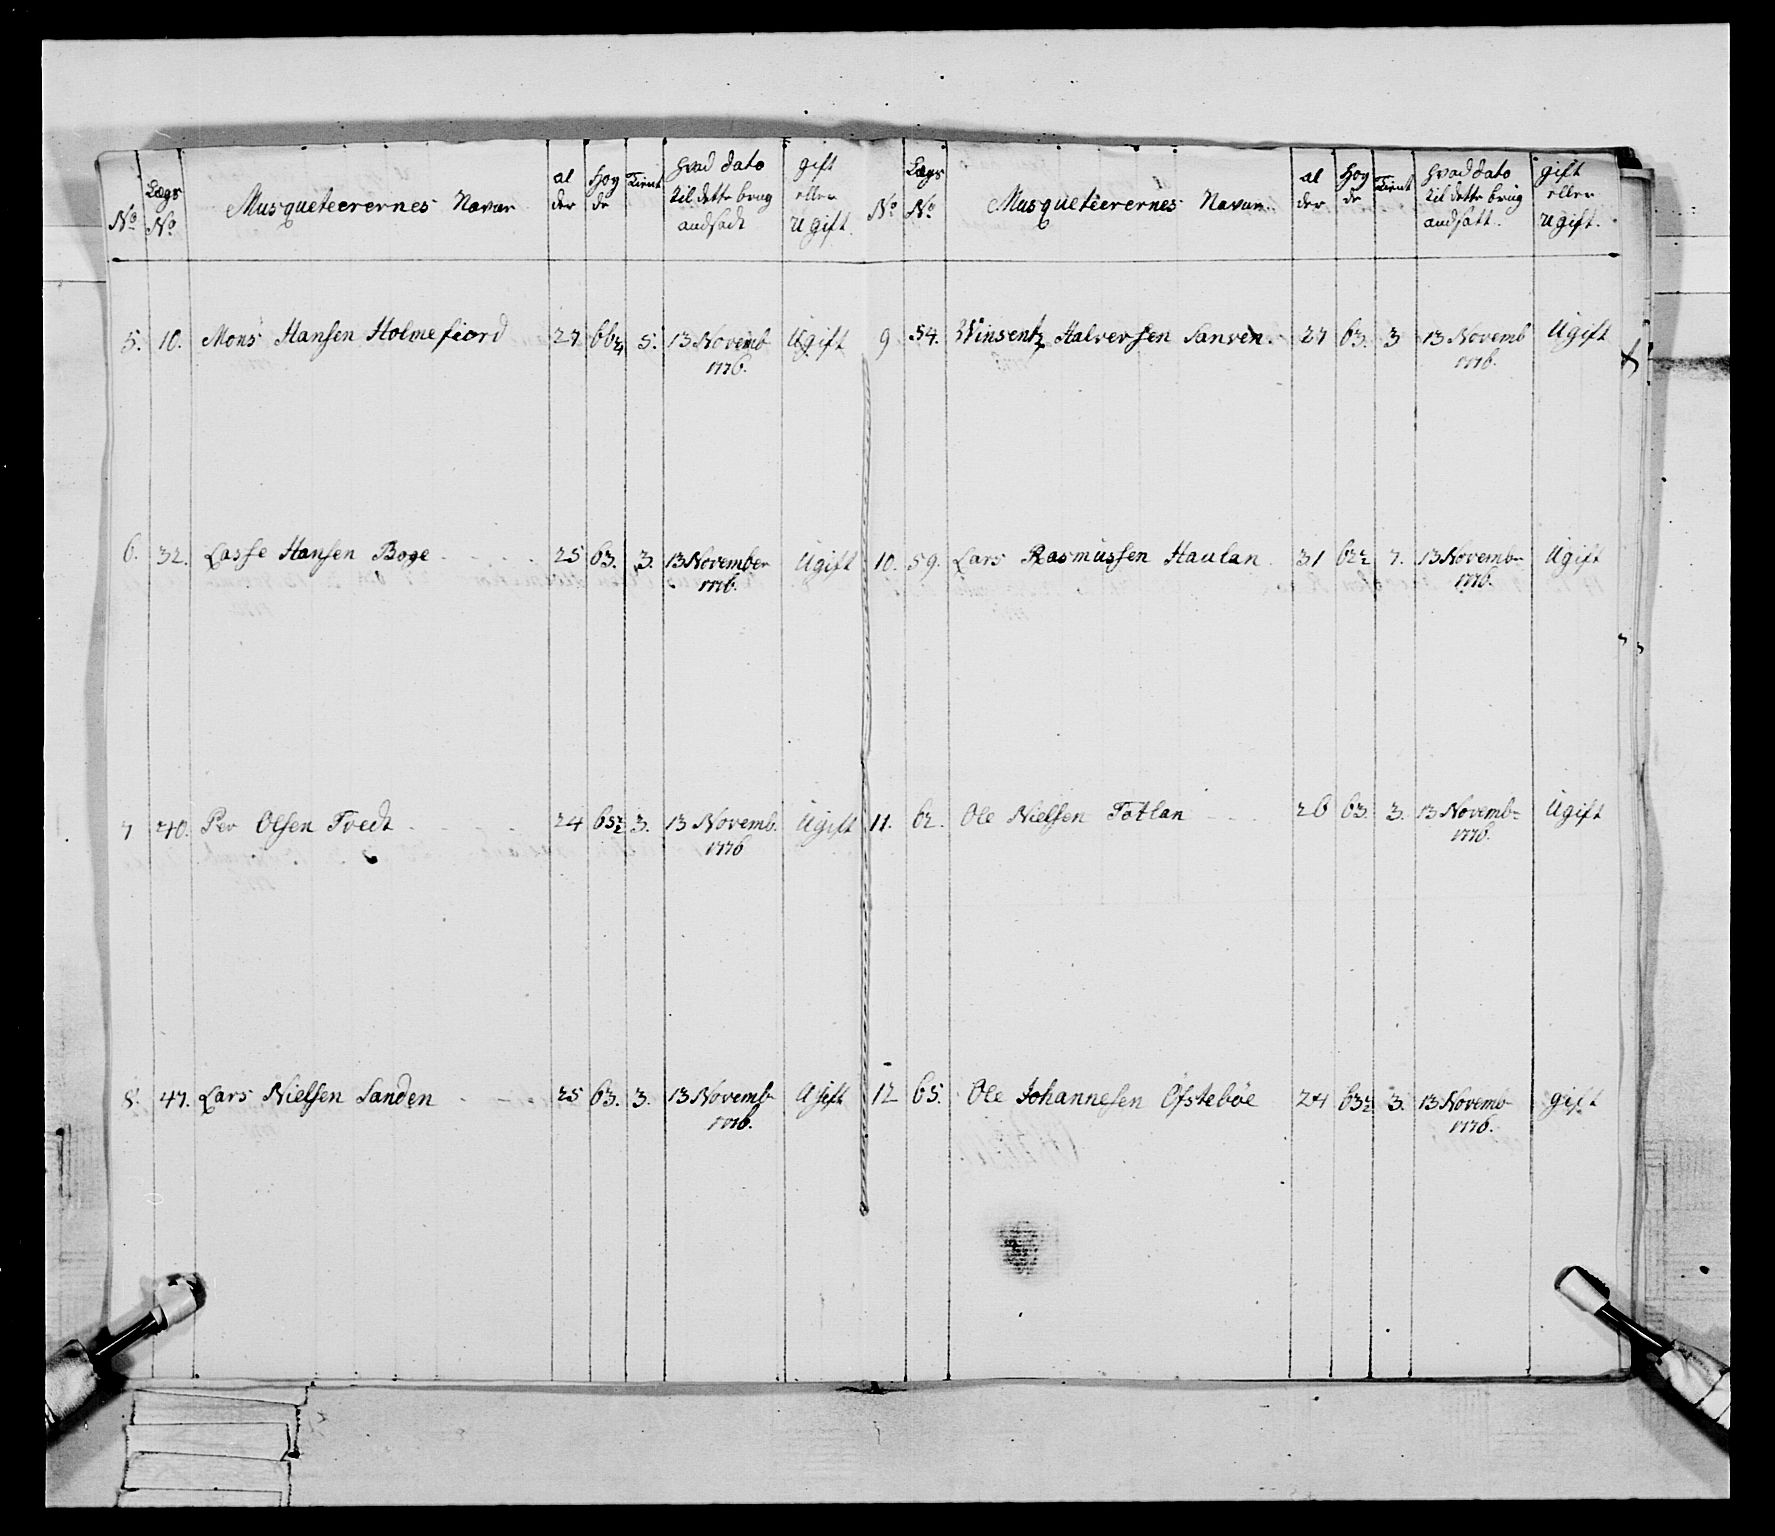 No Lægs No Musqueteerernes Navne al der Høy de Tient hvad dato til dette brug andsadt gift eller Ugift.
5. 10. Mons Hansen Holmefiord 27. 66¼ 5. 13 Novemb 1776. Ugift
6. 32. Lasse Hansen Boge 25 63. 3. 13 November 1776. Ugift
7 40. Per Olsen Tvedt 24 65½ 3. 13 Novemb. 1776 Ugift
8. 47. Lars Nielsen Sanden 25 63. 3. 13 Novemb 1776. Ugift
No Lægs No Musqueteerernes Navne. al der Høy de Tient hvad dato til dette brug andsatt. gift eller Ugift.
9 54. Winsentz Halversen Sanven 27 63. 3 13 Novemb 1776. Ugift
10. 59. Lars Rasmussen Haulan 31 62½ 7. 13 Novemb 1776. Ugift
11. 62. Ole Nielsen Totlan 26 63. 3. 13 Novemb 1776. Ugift
12 65. Ole Johannesen Öfstebøe 24 63½ 3. 13 Novemb 1776. gift